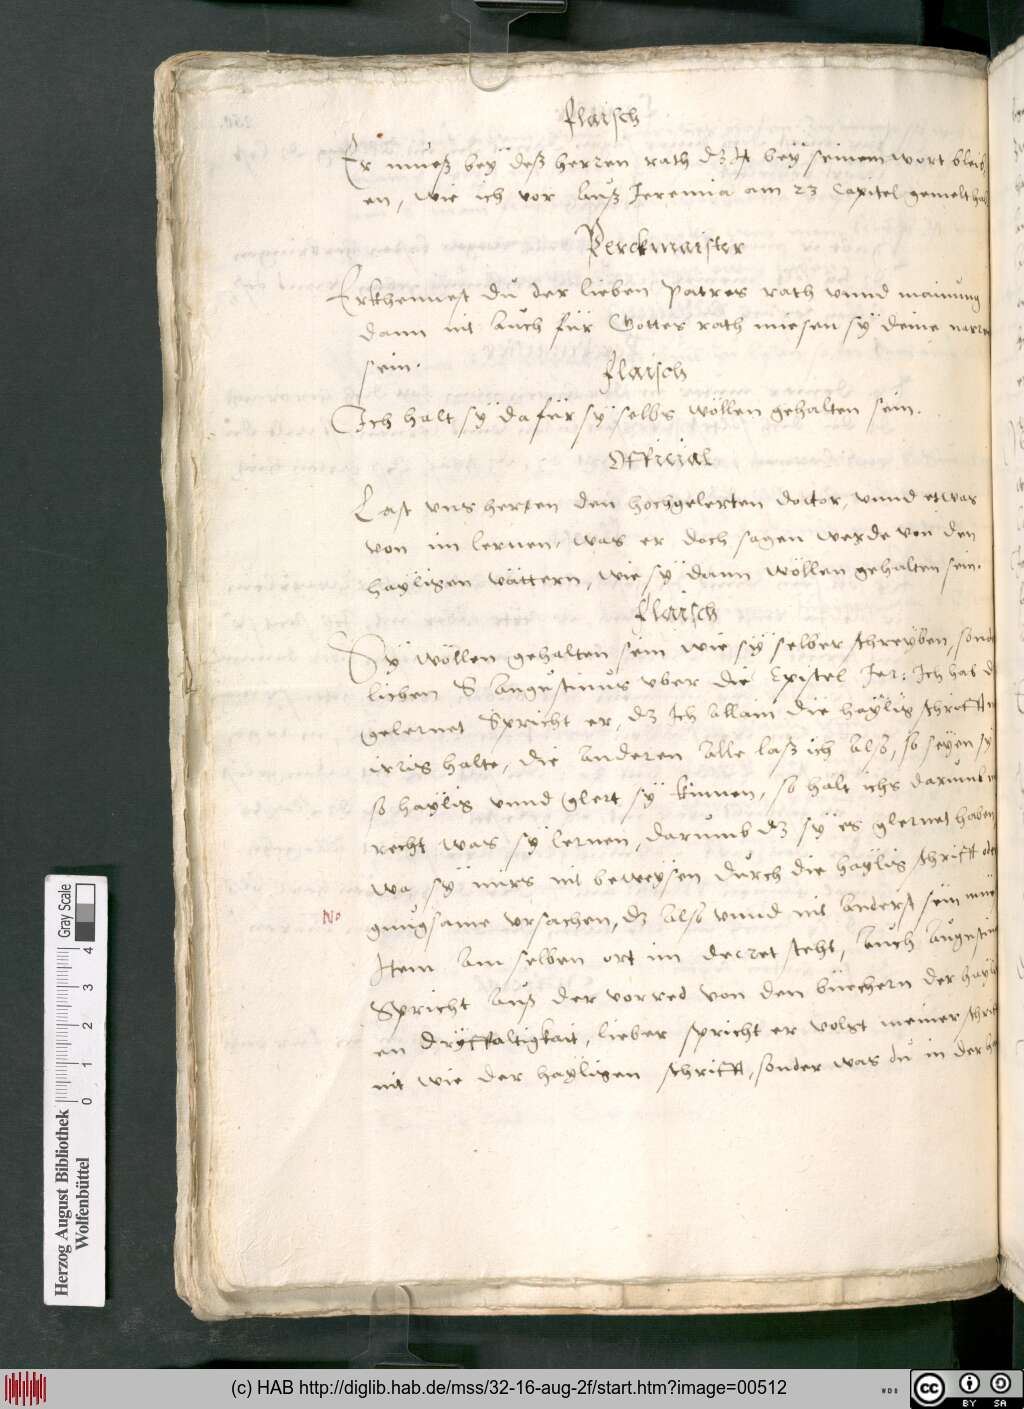 flaisch
Er mueß beÿ deß herren rath dz ist beÿ seinem wort bleib
en, wie ich vor auß Jeremia am 23 Capitel gemelt hab
Perckmaister
Erkhennest du der lieben Patres rath unnd mainung
dann nit auch für Gottes rath miesen sÿ deine narren
sein.
flaisch
Ich halt sÿ dafür sÿ selbs wöllen gehalten sein.
Official
Last uns herren den hochgelerten doctor, unnd etwas
von im lernen, was er doch sagen werde von den
haÿligen vättern, wie sÿ dann wöllen gehalten sein.
flaisch
Sÿ wöllen gehalten sein wie sÿ selber schreÿben, sonder
lichen S Augustinus uber die Epistel Jer: Ich hab d
gelernet Spricht er, dz Ich allain die haÿlig schrifft
irrig halte, die anderen alle laß ich also, so seÿen sÿ
so haÿlig unnd glert sÿ kinnen, so halt ichs darumb
recht was sÿ lernen, darumb dz sÿ es glernet haben
wa sÿ mirs nit beweÿsen durch die haÿlig schrifft oder
No
gnugsame ursachen, dz also unnd nit anderst sein mue
Item am selben ort im decret steht, auch Augustin
Spricht auß der vorred von den büechern der haÿli
en drÿffaltigkait, lieber spricht er volgt meiner schrifft
nit wie der haÿligen schrifft, sonder was du in der h
Gray Scale
4 3 2 1 0
Herzog August Bibliothek
Wolfenbüttel
(c) HAB http://diglib.hab.de/mss/32-16-aug-2f/start.htm?image=00512
WDB
cc BY SA